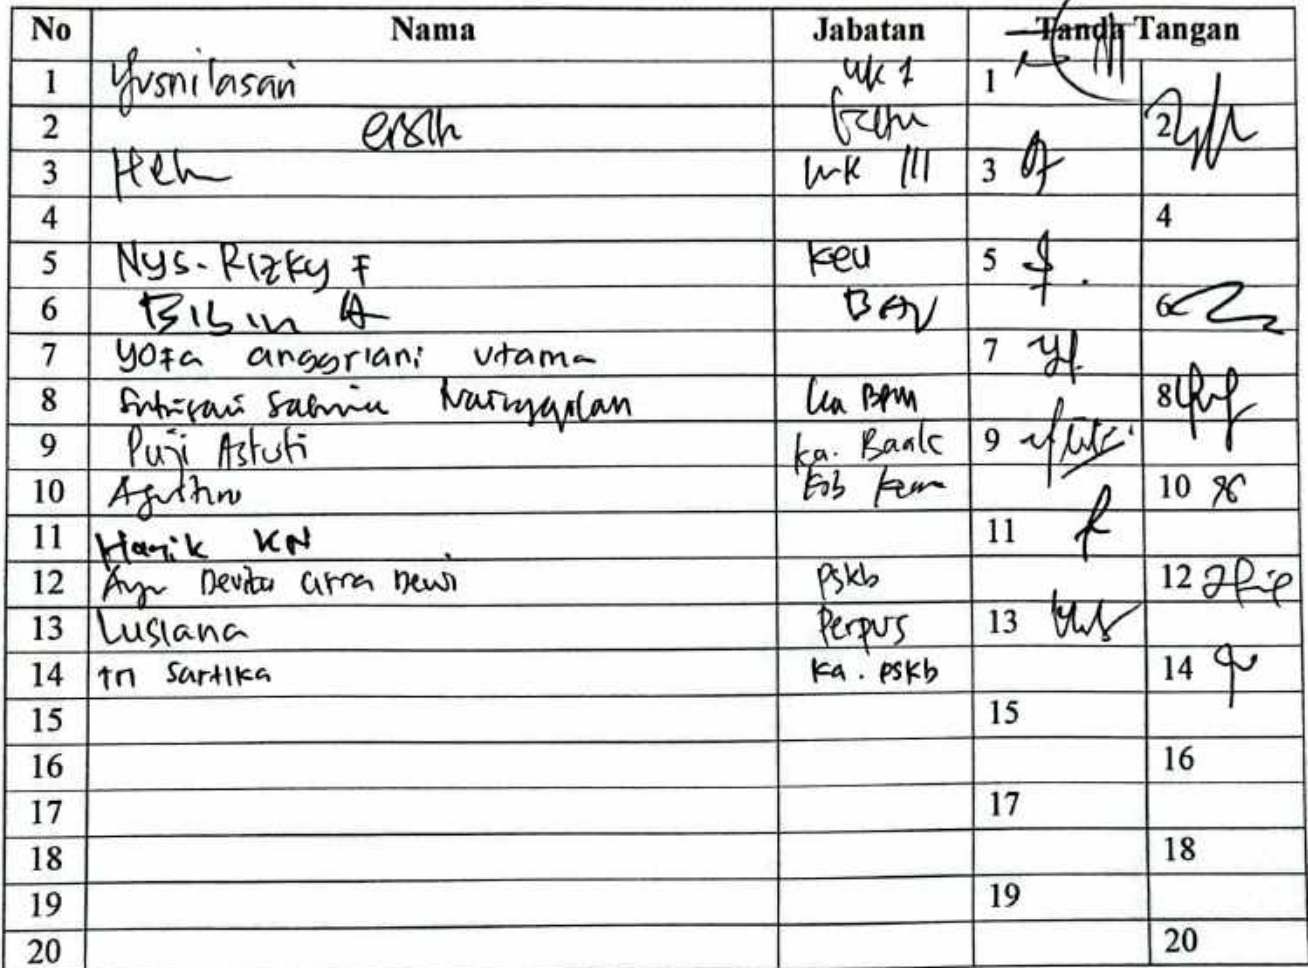 No Nama Jabatan Tanda Tangan
1 Yusnilasari WK 1 1
2 2
3 WK III 3
4 4
5 Nys. Rizky F Keu 5
6 Bibin A 6
7 Yofa anggriani utama 7
8 Nainggolan Ka BPM 8
9 Puji Astuti Ka. Baak 9
10 10
11 KN 11
12 Ayu Devita Citra Dewi PSKb 12
13 Lusiana Perpus 13
14 tri Sartika Ka. PSKb 14
15 15
16 16
17 17
18 18
19 19
20 20